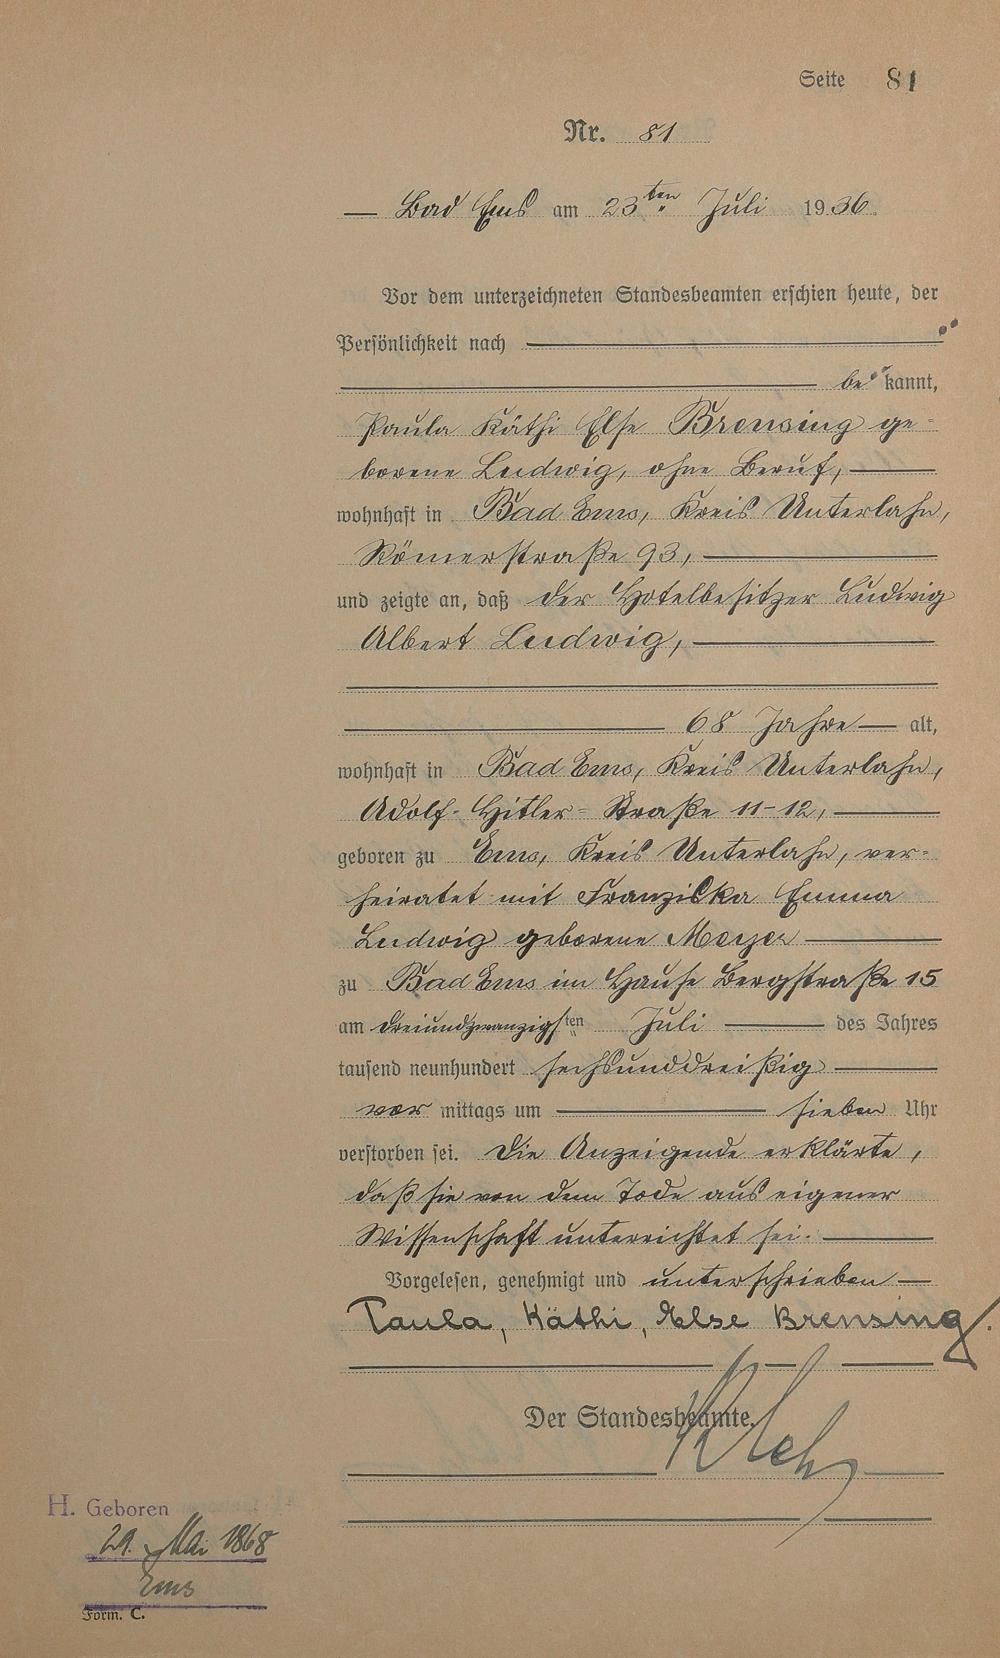 Seite 81
Nr. 81
Bad Ems am 23ten Juli 1936.
Vor dem unterzeichneten Standesbeamten erschien heute, der
Persönlichkeit nach
be kannt,
Paula Käthi Else Brensing ge-
borene Ludwig, ohne Beruf,
wohnhaft in Bad Ems, Kreis Unterlahn,
Römerstraße 93,
und zeigte an, daß der Hotelbesitzer Ludwig
Albert Ludwig,
68 Jahre alt,
wohnhaft in Bad Ems, Kreis Unterlahn,
Adolf-Hitler-Straße 11-12,
geboren zu Ems, Kreis Unterlahn, ver-
heiratet mit Franziska Emma
Ludwig geborene
zu Bad Ems im Hause Bergstraße 15
am dreiundzwanzigsten Juli des Jahres
tausend neunhundert sechsunddreißig
vor mittags um sieben Uhr
verstorben sei. Die Anzeigende erklärte,
daß sie von dem Tode aus eigener
Wissenschaft unterrichtet sei.
Vorgelesen, genehmigt und unterschrieben
Paula, Käthi, Else Brensing.
Der Standesbeamte.
H. Geboren
29. Mai 1868
Ems
Form. C.